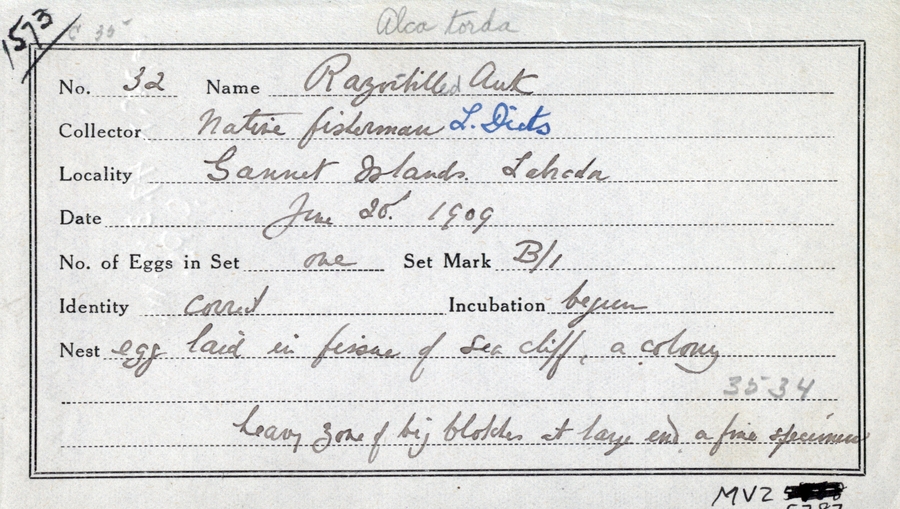 Alca torda
1573
C 35
No. 32 Name Razorbilled Auk
Collector Native fisherman L. Dicks
Locality Gannet Islands. Labrador
Date June 20. 1909
No. of Eggs in Set one Set Mark B/1
Identity correct Incubation begun
Nest egg laid in fissure of sea cliff, a colony
3534
heavy zone of big blotches at large end a fine specimen
MVZ